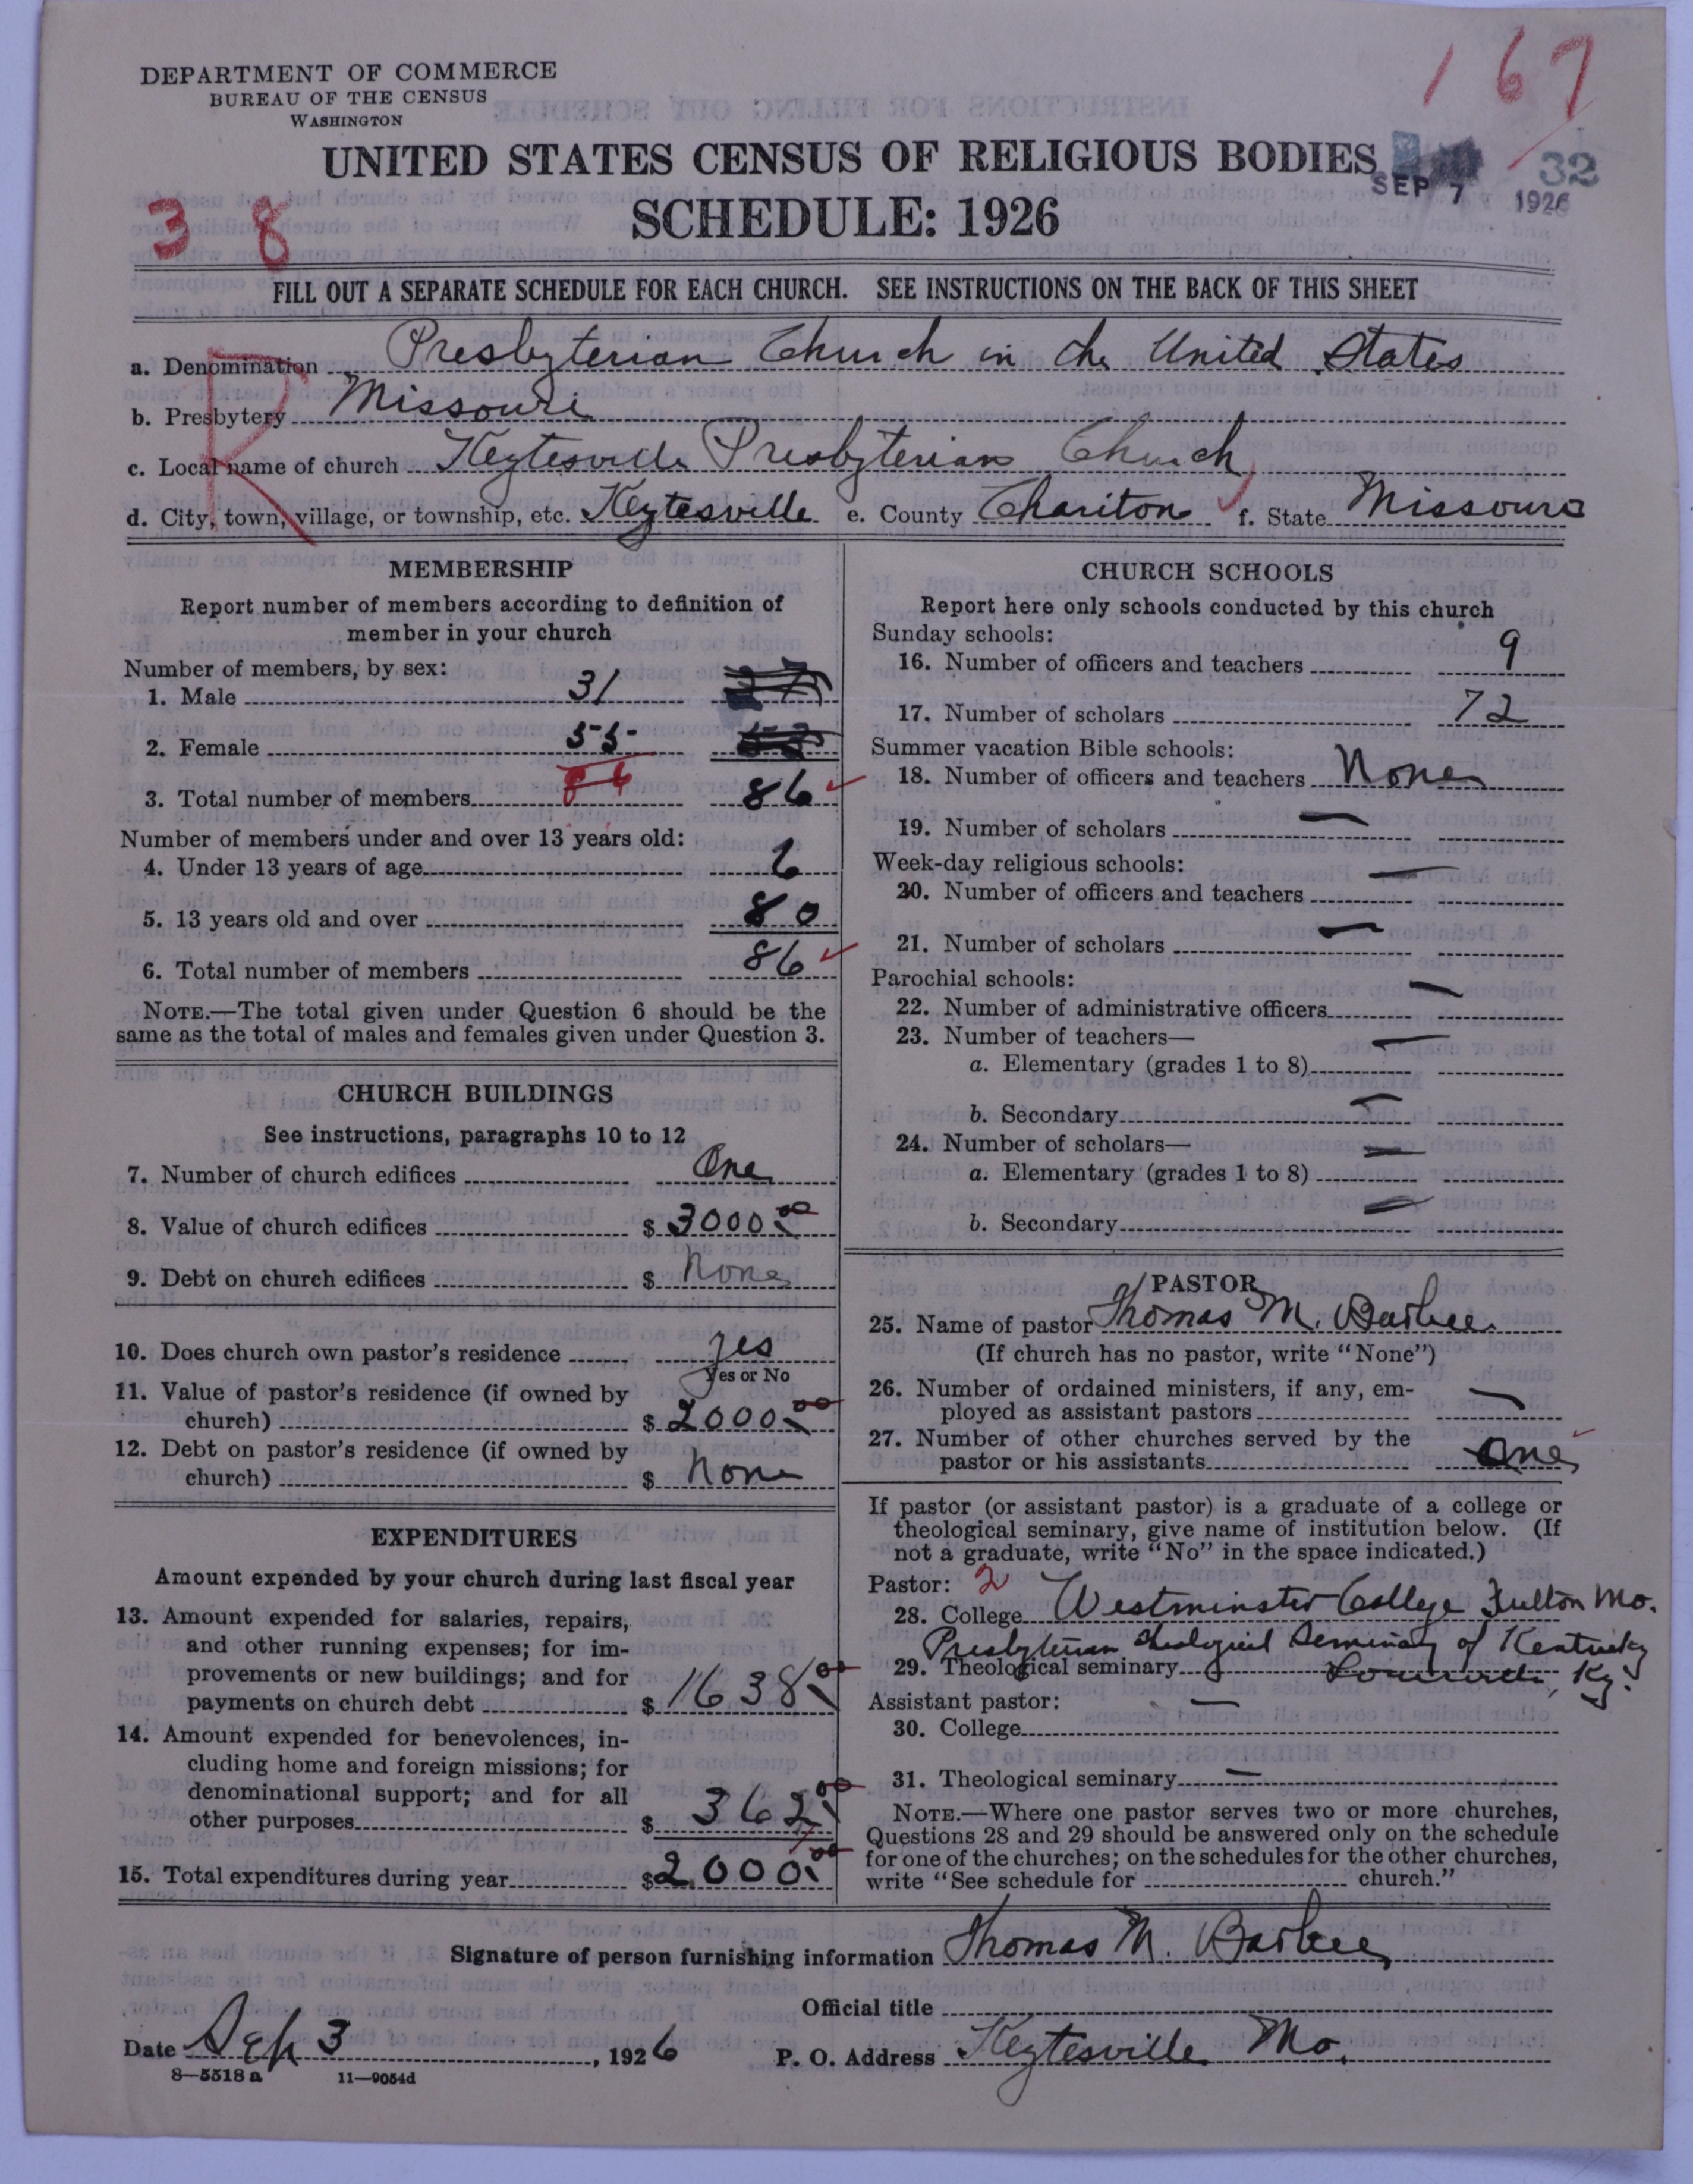 DEPARTMENT OF COMMERCE
BUREAU OF THE CENSUS
WASHINGTON
167
UNITED STATES CENSUS OF RELIGIOUS BODIES
32
SEP 7 1926
SCHEDULE: 1926
3 8
FILL OUT A SEPARATE SCHEDULE FOR EACH CHURCH. SEE INSTRUCTIONS ON THE BACK OF THIS SHEET
R
a. Denomination Presbyterian Church in the United States
b. Presbytery Missouri
c. Local name of church Keytesville Presbyterian Church
d. City, town, village, or township, etc. Keytesville e. County Chariton f. State Missouri
MEMBERSHIP
Report number of members according to definition of
member in your church
Number of members, by sex:
1. Male 31
2. Female 55
86
3. Total number of members 86
Number of members under and over 13 years old:
4. Under 13 years of age 6
5. 13 years old and over 80
6. Total number of members 86
NOTE.—The total given under Question 6 should be the
same as the total of males and females given under Question 3.
CHURCH BUILDINGS
See instructions, paragraphs 10 to 12
7. Number of church edifices One
8. Value of church edifices $ 3000.00
9. Debt on church edifices $ None
10. Does church own pastor's residence yes
Yes or No
11. Value of pastor's residence (if owned by
church) $ 2000.00
12. Debt on pastor's residence (if owned by
church) $ None
EXPENDITURES
Amount expended by your church during last fiscal year
13. Amount expended for salaries, repairs,
and other running expenses; for im-
provements or new buildings; and for
payments on church debt $ 1638.00
14. Amount expended for benevolences, in-
cluding home and foreign missions; for
denominational support; and for all
other purposes $ 362.00
15. Total expenditures during year $ 2000.00
CHURCH SCHOOLS
Report here only schools conducted by this church
Sunday schools:
16. Number of officers and teachers 9
17. Number of scholars 72
Summer vacation Bible schools:
18. Number of officers and teachers None
19. Number of scholars —
Week-day religious schools:
20. Number of officers and teachers —
21. Number of scholars —
Parochial schools:
22. Number of administrative officers —
23. Number of teachers—
a. Elementary (grades 1 to 8) —
b. Secondary —
24. Number of scholars—
a. Elementary (grades 1 to 8) —
b. Secondary —
PASTOR
25. Name of pastor Thomas M. Barbee
(If church has no pastor, write "None")
26. Number of ordained ministers, if any, em-
ployed as assistant pastors —
27. Number of other churches served by the
pastor or his assistants One
If pastor (or assistant pastor) is a graduate of a college or
theological seminary, give name of institution below. (If
not a graduate, write "No" in the space indicated.)
Pastor: 2
28. College Westminster College Fulton Mo.
Presbyterian Theological Seminary of Kentucky
29. Theological seminary Louisville, Ky.
Assistant pastor:
30. College —
31. Theological seminary —
NOTE.—Where one pastor serves two or more churches,
Questions 28 and 29 should be answered only on the schedule
for one of the churches; on the schedules for the other churches,
write "See schedule for church."
Signature of person furnishing information Thomas M. Barbee
Official title
Date Sept 3, 1926 P. O. Address Keytesville Mo.
8—5518 a 11—9054d